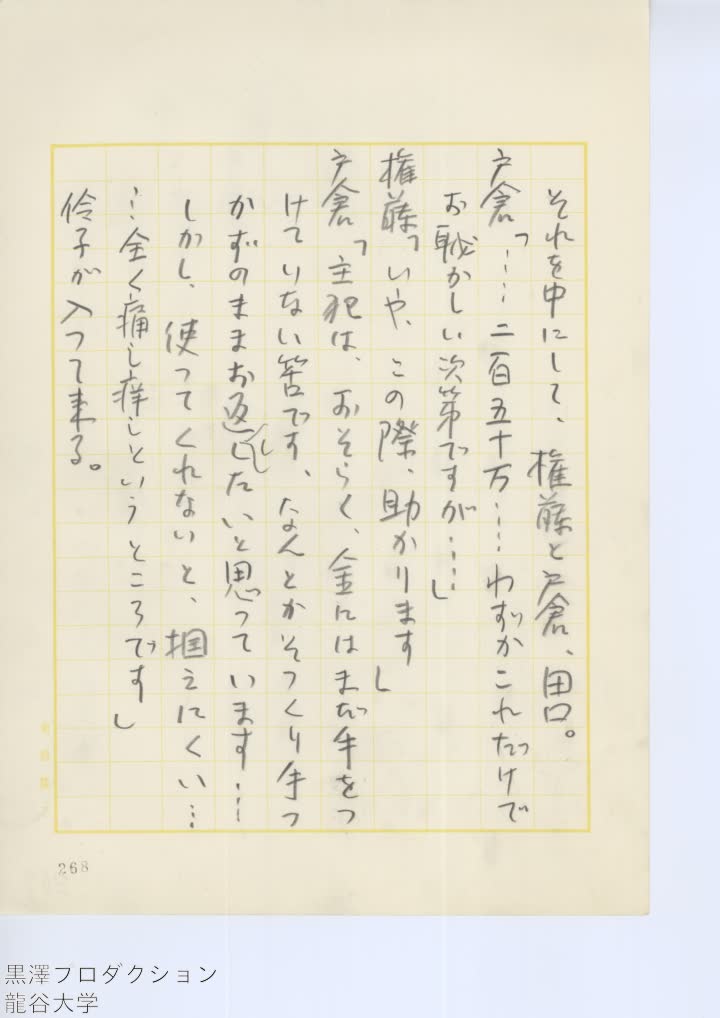 それを中にして、権藤と戸倉、田口。
戸倉「……二百五十万……わずかこれだけで
お恥かしい次第ですが……」
権藤「いや、この際、助かります」
戸倉「主犯は、おそらく、金にはまだ手をつ
けていない筈です、なんとかそっくり手つ
かずのままお返ししたいと思っています…
しかし、使ってくれないと、掴えにくい…
…全く痛し痒しというところです」
伶子が入って来る。
268
黒澤プロダクション
龍谷大学